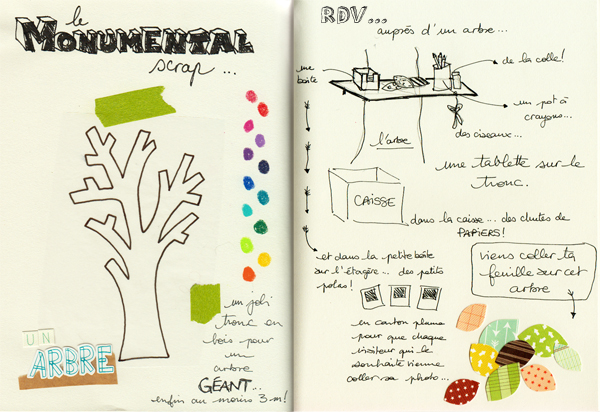 le
MONUMENTAL
scrap...
UN
ARBRE
un joli
tronc en
bois pour
un
arbre
GÉANT...
enfin au moins 3m!
RDV...
auprès d'un arbre...
une
boîte
de la colle!
un pot à
crayons...
des ciseaux...
l'arbre
une tablette sur le
tronc.
CAISSE
dans la caisse... des chutes de
PAPIERS!
et dans la petite boîte
sur l'étagère... des petits
polas!
en carton plume
pour que chaque
visiteur qui le
souhaite vienne
coller sa photo...
viens coller ta
feuille sur cet
arbre